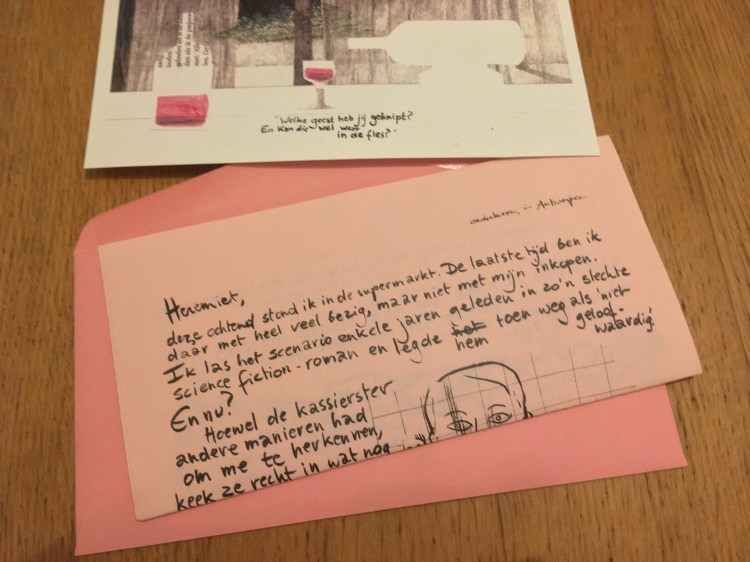 "Welke geest heb jij geknipt?
En kan die wel weer
in de fles?"
ondertussen, in Antwerpen
Heremiet,
deze ochtend stond ik in de supermarkt. De laatste tijd ben ik
daar met heel veel bezig, maar niet met mijn inkopen.
Ik las het scenario enkele jaren geleden in zo'n slechte
science fiction-roman en legde het toen weg als 'niet
hem geloof-
waardig'.
En nu?
Hoewel de kassierster
andere manieren had
om me te herkennen,
keek ze recht in wat nog